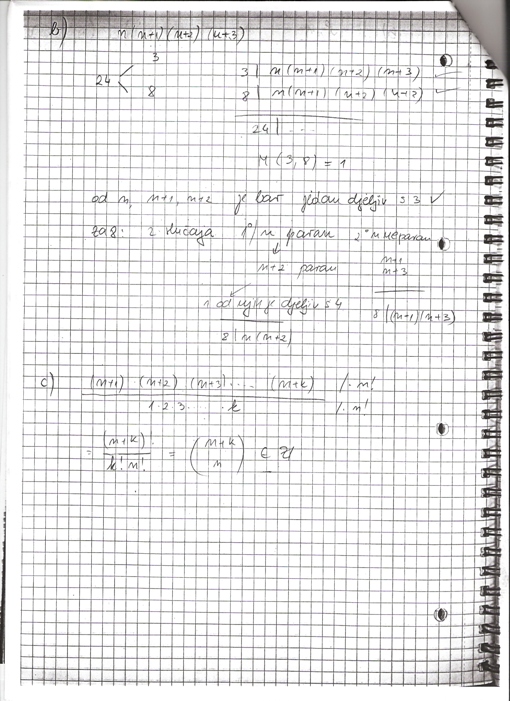 b) n(n+1)(n+2)(n+3)
24 < 3 8
3 | n(n+1)(n+2)(n+3) ✓
8 | n(n+1)(n+2)(n+3) ✓
24 | ...
M(3,8) = 1
od n, n+1, n+2 je bar jedan djeljiv s 3 ✓
za 8: 2 slučaja 1° n paran 2° n neparan
↓
n+2 paran
n+1
n+3
1 od njih je djeljiv s 4
8 | (n+1)(n+3)
8 | n(n+2)
c) (n+1)·(n+2)·(n+3)·...·(n+k) /· n!
1·2·3·......·k /· n!
= (n+k)! / k! n! = (n+k n) ∈ Z